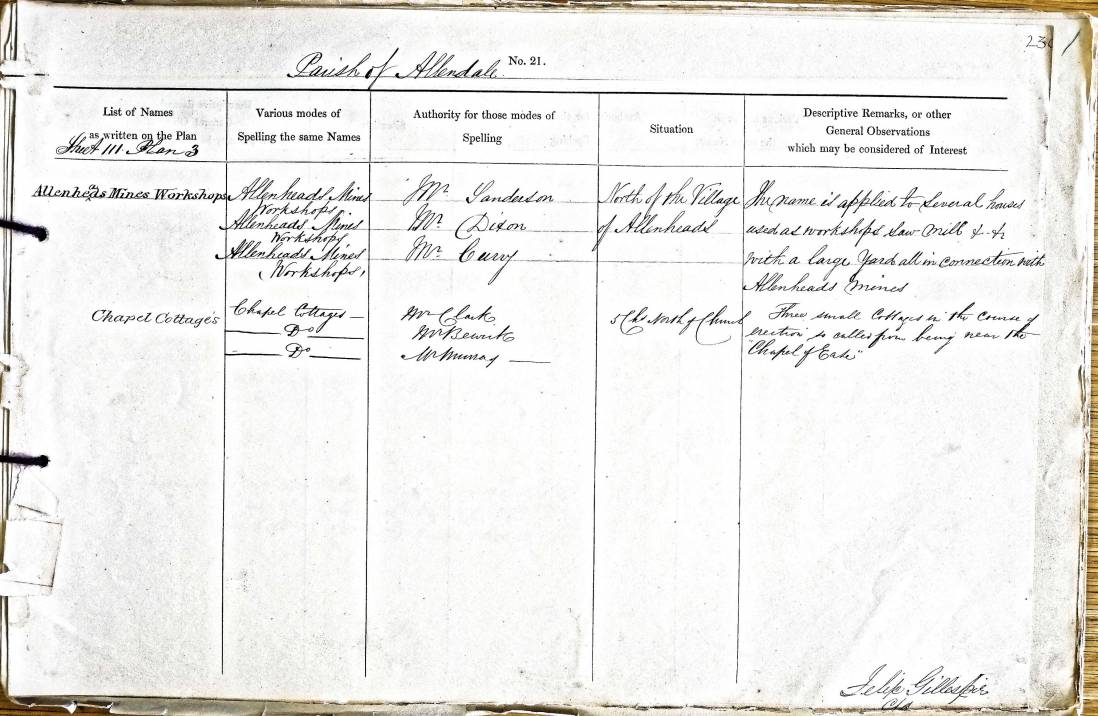 23
Parish of Allendale No. 21.
List of Names
as written on the Plan
Sheet 111 Plan 3
Various modes of
Spelling the same Names
Authority for those modes of
Spelling
Situation
Descriptive Remarks, or other
General Observations
which may be considered of Interest
Allenheads Mines Workshops
Allenheads Mines
Workshops
Allenheads Mines
Workshops
Allenheads Mines
Workshops
Mr. Sanderson
Mr. Dixon
Mr. Curry
North of the Village
of Allenheads
The name is applied to Several houses
used as workshops Saw Mill &c &c
with a large Yard all in connection with
Allenheads Mines
Chapel Cottages
Chapel Cottages
Do
Do
Mr Clark
Mr Bewick
Mr Murray
5 Chs North of Church
Three small Cottages in the course of
erection so called from being near the
"Chapel of Ease"
Felix Gillespie
C/A